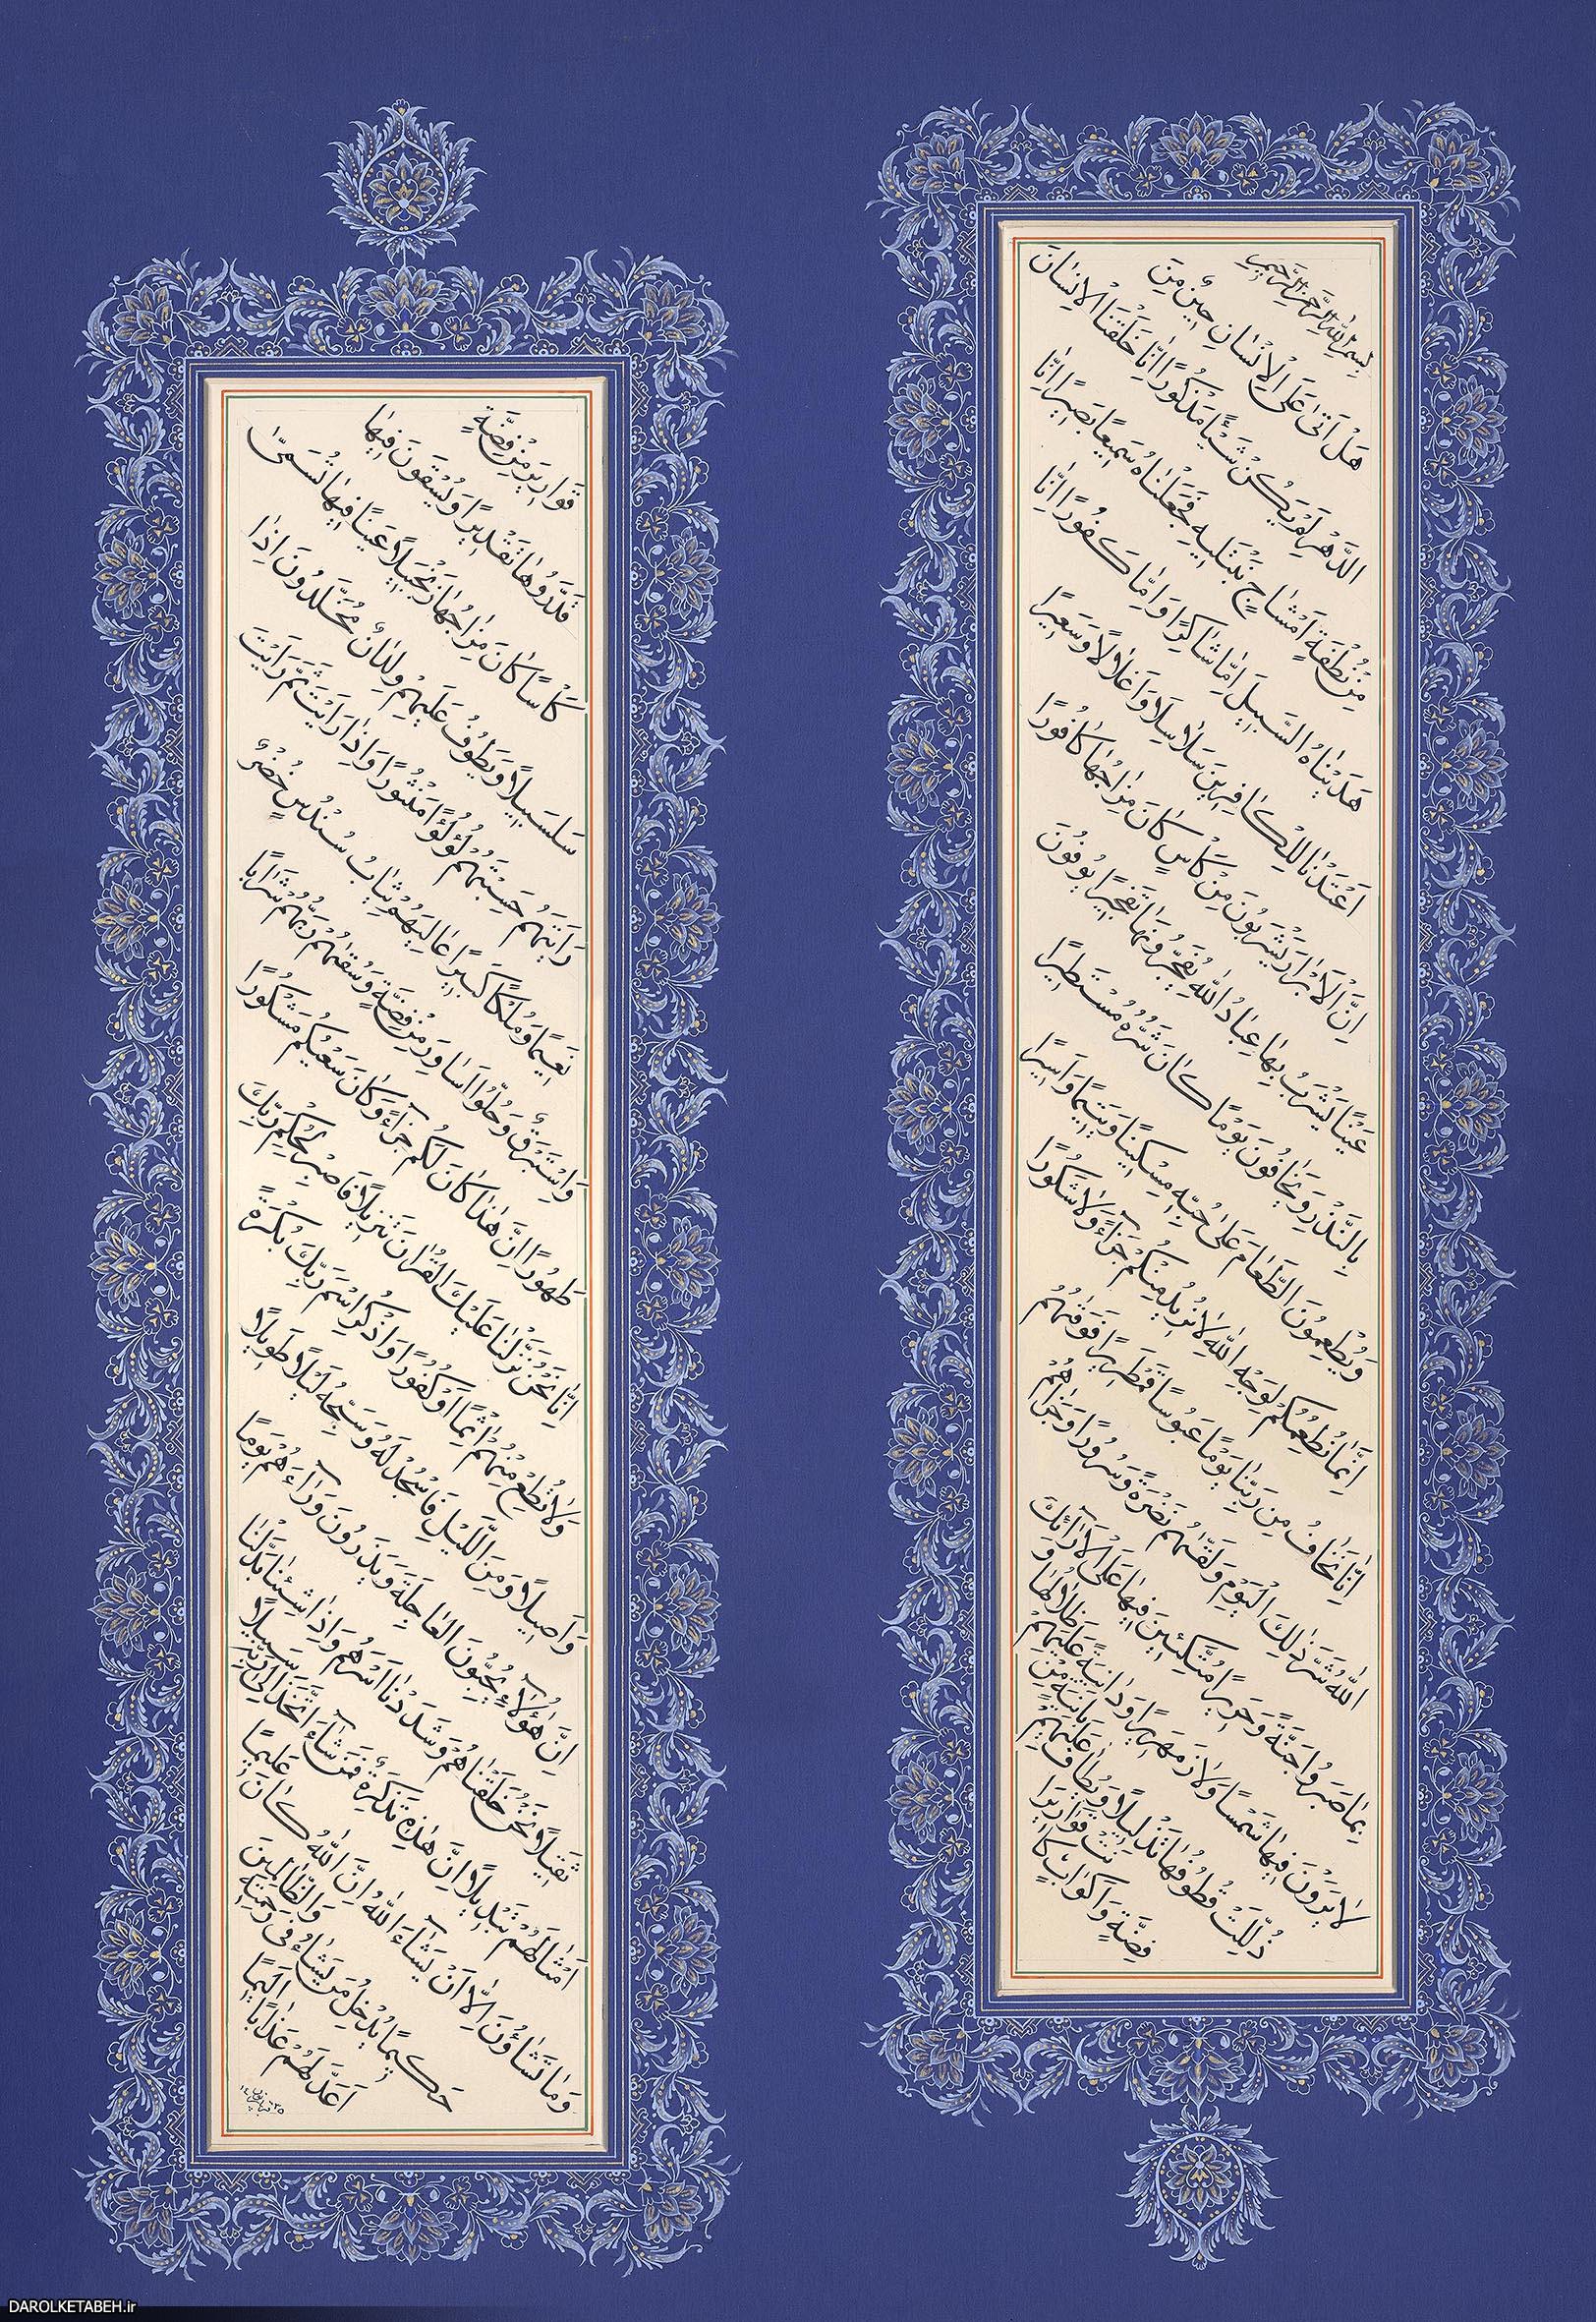 بسم الله الرحمن الرحیم
هَلْ اَتیٰ عَلَی الْاِنْسٰانِ حینٌ مِنَ
الدَّهْرِ لَمْ یَکُنْ شَیْئًا مَذْکُورًا اِنّٰا خَلَقْنَا الْاِنْسٰانَ
مِنْ نُطْفَةٍ اَمْشٰاجٍ نَبْتَلیهِ فَجَعَلْنٰاهُ سَمیعًا بَصیرًا اِنّٰا
هَدَیْنٰاهُ السَّبیلَ اِمّٰا شٰاکِرًا وَ اِمّٰا کَفُورًا اِنّٰا
اَعْتَدْنٰا لِلْکٰافِرینَ سَلٰاسِلَا وَ اَغْلٰالًا وَ سَعیرًا
اِنَّ الْاَبْرٰارَ یَشْرَبُونَ مِنْ کَأْسٍ کٰانَ مِزٰاجُهٰا کٰافُورًا
عَیْنًا یَشْرَبُ بِهٰا عِبٰادُ اللّٰهِ یُفَجِّرُونَهٰا تَفْجیرًا یُوفُونَ
بِالنَّذْرِ وَ یَخٰافُونَ یَوْمًا کٰانَ شَرُّهُ مُسْتَطیرًا
وَ یُطْعِمُونَ الطَّعٰامَ عَلیٰ حُبِّهِ مِسْکینًا وَ یَتیمًا وَ اَسیرًا
اِنَّمٰا نُطْعِمُکُمْ لِوَجْهِ اللّٰهِ لٰا نُریدُ مِنْکُمْ جَزٰآءً وَلٰا شُکُورًا
اِنّٰا نَخٰافُ مِنْ رَبِّنٰا یَوْمًا عَبُوسًا قَمْطَریرًا فَوَقٰیٰهُمُ
اللّٰهُ شَرَّ ذٰلِکَ الْیَوْمِ وَ لَقّٰیٰهُمْ نَضْرَةً وَ سُرُورًا وَ جَزٰاهُمْ
بِمٰا صَبَرُوا جَنَّةً وَ حَریرًا مُتَّکِئینَ فیهٰا عَلَی الْاَرٰآئِکِ
لٰا یَرَوْنَ فیهٰا شَمْسًا وَلٰا زَمْهَریرًا وَ دٰانِیَةً عَلَیْهِمْ ظِلٰالُهٰا وَ
ذُلِّلَتْ قُطُوفُهٰا تَذْلیلًا وَ یُطٰافُ عَلَیْهِمْ بِاٰنِیَةٍ مِنْ
فِضَّةٍ وَ اَکْوٰابٍ کٰانَتْ قَوٰاریرَا
قَوٰاریرَ مِنْ فِضَّةٍ
قَدَّرُوهٰا تَقْدیرًا وَ یُسْقَوْنَ فیهٰا
کَأْسًا کٰانَ مِزٰاجُهٰا زَنْجَبیلًا عَیْنًا فیهٰا تُسَمّیٰ
سَلْسَبیلًا وَ یَطُوفُ عَلَیْهِمْ وِلْدٰانٌ مُخَلَّدُونَ اِذٰا
رَاَیْتَهُمْ حَسِبْتَهُمْ لُؤْلُؤًا مَنْثُورًا وَ اِذٰا رَاَیْتَ ثَمَّ رَاَیْتَ
نَعیمًا وَ مُلْکًا کَبیرًا عٰالِیَهُمْ ثِیٰابُ سُنْدُسٍ خُضْرٌ
وَ اِسْتَبْرَقٌ وَ حُلُّوا اَسٰاوِرَ مِنْ فِضَّةٍ وَ سَقٰیٰهُمْ رَبُّهُمْ شَرٰابًا
طَهُورًا اِنَّ هٰذٰا کٰانَ لَکُمْ جَزٰآءً وَ کٰانَ سَعْیُکُمْ مَشْکُورًا
اِنّٰا نَحْنُ نَزَّلْنٰا عَلَیْکَ الْقُرْاٰنَ تَنْزیلًا فَاصْبِرْ لِحُکْمِ رَبِّکَ
وَلٰا تُطِعْ مِنْهُمْ اٰثِمًا اَوْ کَفُورًا وَ اذْکُرِ اسْمَ رَبِّکَ بُکْرَةً
وَ اَصیلًا وَ مِنَ اللَّیْلِ فَاسْجُدْ لَهُ وَ سَبِّحْهُ لَیْلًا طَویلًا
اِنَّ هٰٓؤُلٰآءِ یُحِبُّونَ الْعٰاجِلَةَ وَ یَذَرُونَ وَرٰآءَهُمْ یَوْمًا
ثَقیلًا نَحْنُ خَلَقْنٰاهُمْ وَ شَدَدْنٰا اَسْرَهُمْ وَ اِذٰا شِئْنٰا بَدَّلْنٰا
اَمْثٰالَهُمْ تَبْدیلًا اِنَّ هٰذِهِ تَذْکِرَةٌ فَمَنْ شٰآءَ اتَّخَذَ اِلیٰ رَبِّهِ سَبیلًا
وَمٰا تَشٰاؤُنَ اِلّٰا اَنْ یَشٰآءَ اللّٰهُ اِنَّ اللّٰهَ کٰانَ عَلیمًا
حَکیمًا یُدْخِلُ مَنْ یَشٰاءُ فی رَحْمَتِهِ وَ الظّٰالِمینَ
اَعَدَّ لَهُمْ عَذٰابًا اَلیمًا
DAROLKETABEH.ir